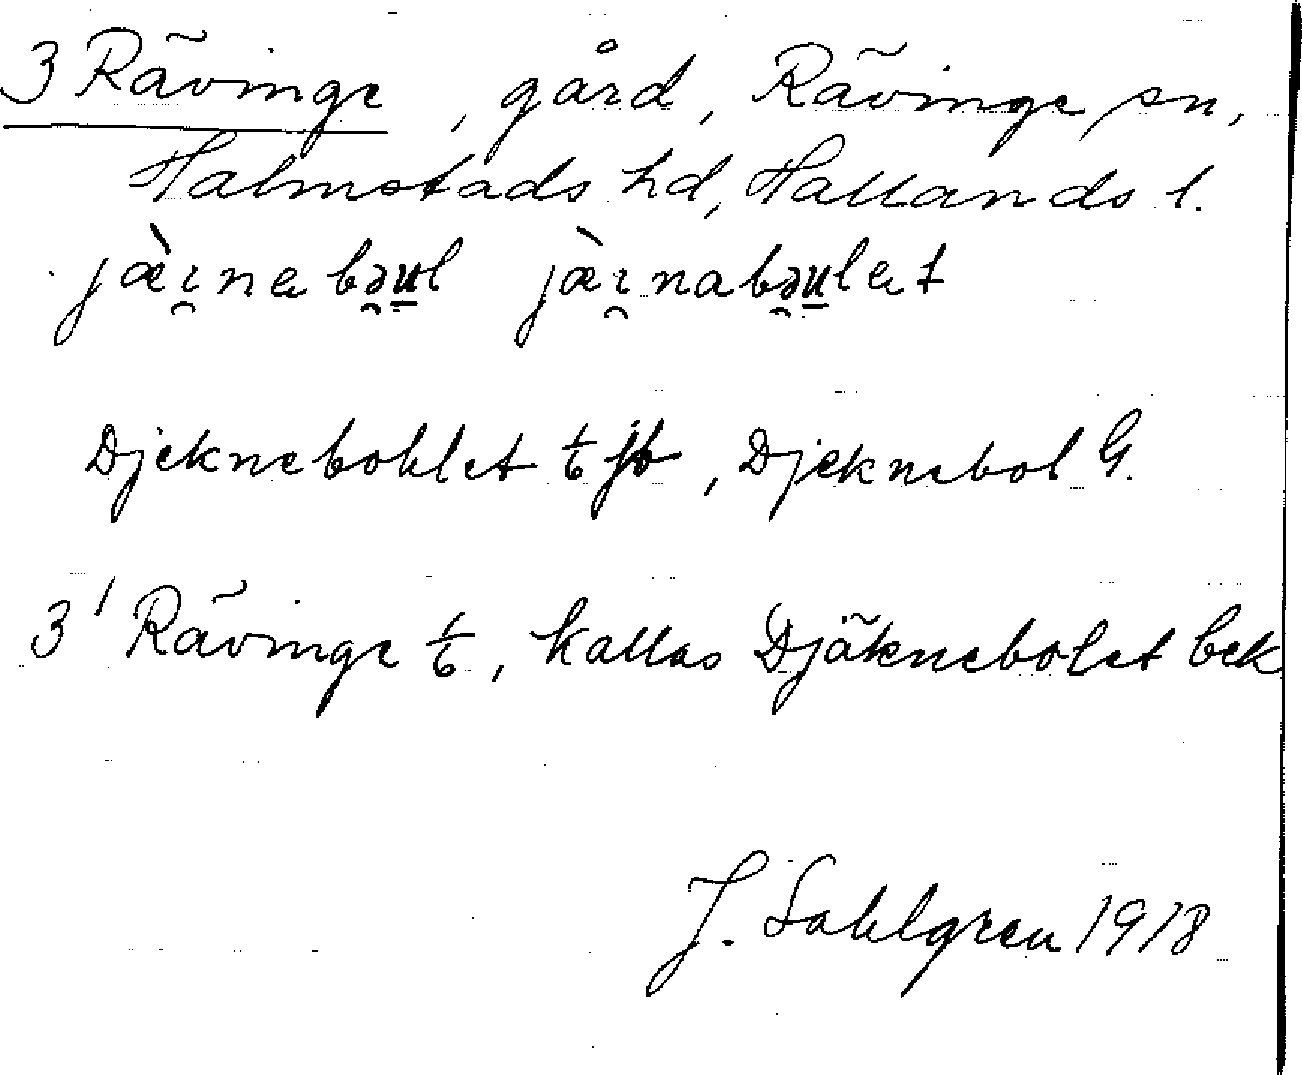 3 Rävinge, gård, Rävinge sn,
Halmstads hd, Hallands l.
jæ̀ı̯nabə̯u̲l jæ̀ı̯nabə̯u̲lat
Djeknebohlet ⅙ Jb, Djeknebol G.
3¹ Rävinge ⅙, kallas Djäknebolet bek
J. Sahlgren 1918